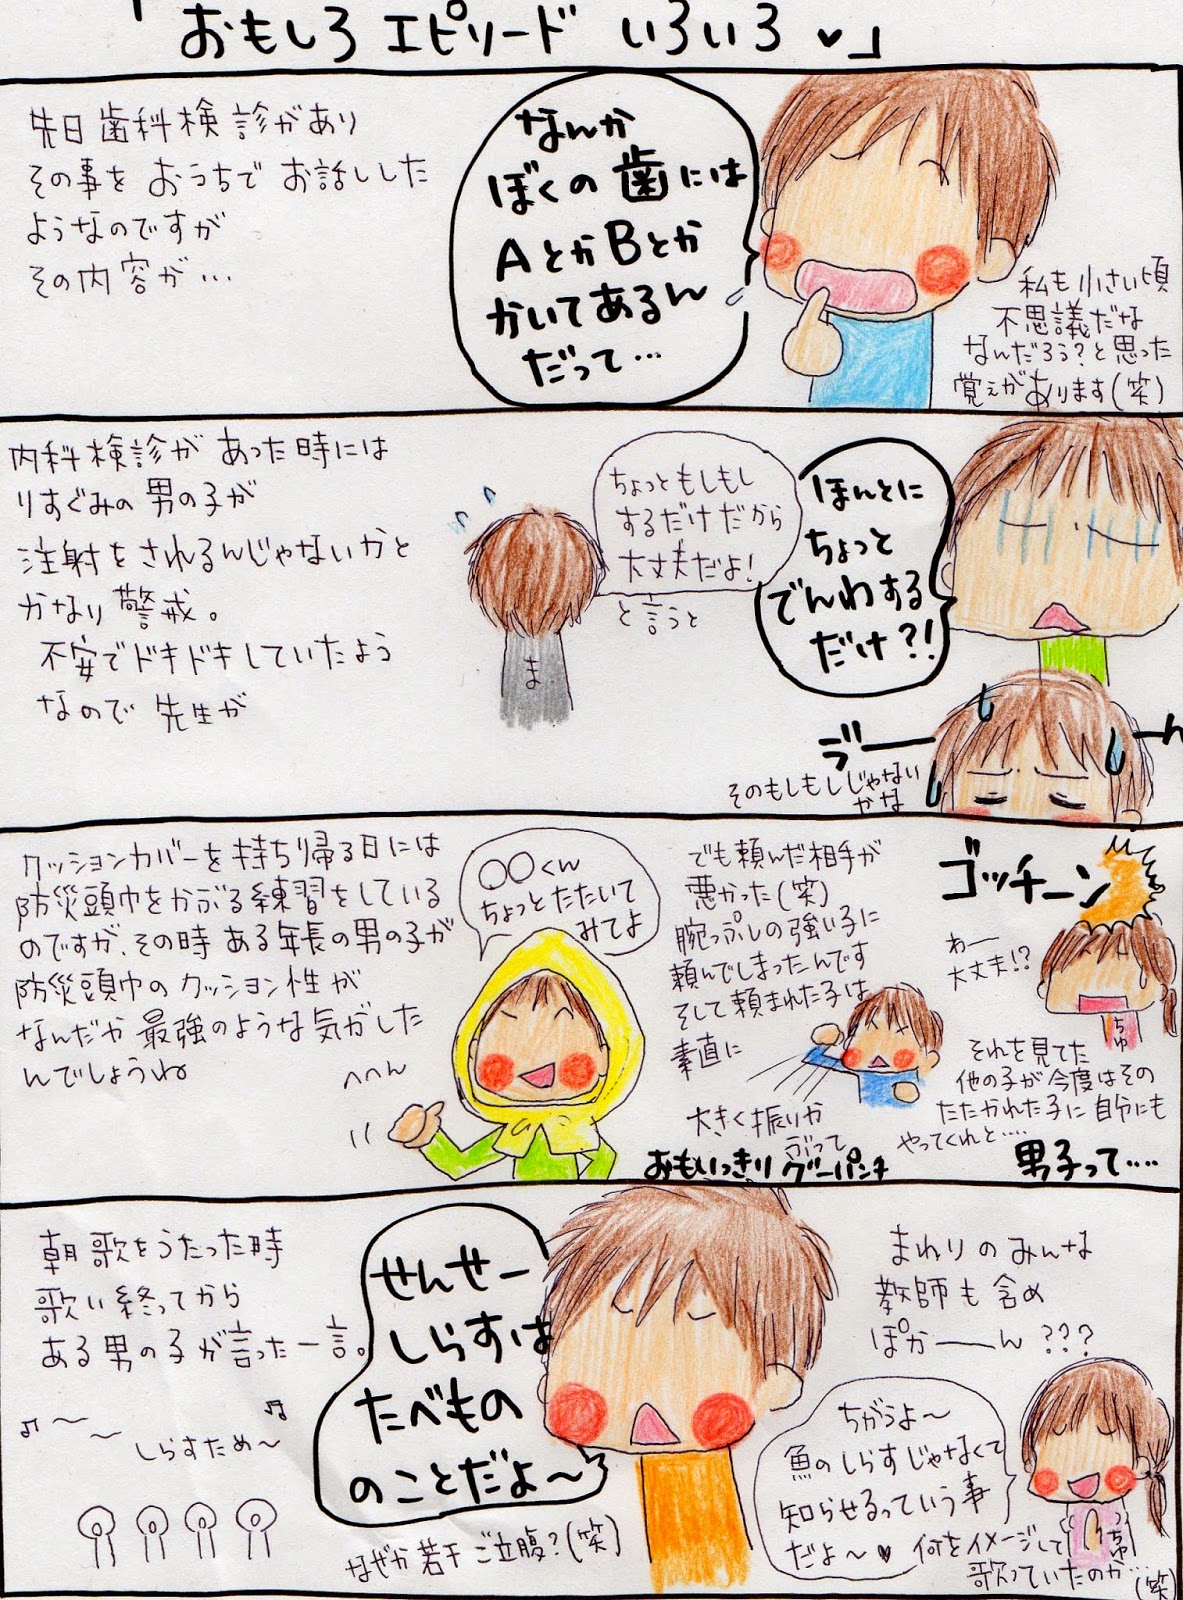 「おもしろエピソード いろいろ♥」
先日歯科検診があり
その事をおうちでお話しした
ようなのですが
その内容が…
なんか
ぼくの歯には
AとかBとか
かいてあるん
だって…
私も小さい頃
不思議だな
なんだろう?と思った
覚えがあります(笑)
内科検診があった時には
りすぐみの男の子が
注射をされるんじゃないかと
かなり警戒。
不安でドキドキしていたよう
なので先生が
ちょっともしもし
するだけだから
大丈夫だよ!
と言うと
ま
ほんとに
ちょっと
でんわする
だけ?!
デーーん
そのもしもしじゃない
かな
クッションカバーを持ち帰る日には
防災頭巾をかぶる練習をしている
のですが、その時ある年長の男の子が
防災頭巾のクッション性が
なんだか最強のような気がした
んでしょうね
へへん
〇〇くん
ちょっとたたいて
みてよ
でも頼んだ相手が
悪かった(笑)
腕っぷしの強い子に
頼んでしまったんです
そして頼まれた子は
素直に
大きく振りか
ぶって
おもいっきりグーパンチ
ゴッチーン
わー
大丈夫!?
ちゅ
それを見てた
他の子が今度はその
たたかれた子に自分にも
やってくれと….
男子って….
朝歌をうたった時
歌い終ってから
ある男の子が言った一言。
♫〜〜しらすため〜♫
せんせー
しらすは
たべもの
のことだよ〜
なぜか若干ご立腹?(笑)
まわりのみんな
教師も含め
ぽかーーん???
ちがうよ〜
魚のしらすじゃなくて
知らせるっていう事
だよ〜♥
何をイメージして
歌っていたのか…(笑)